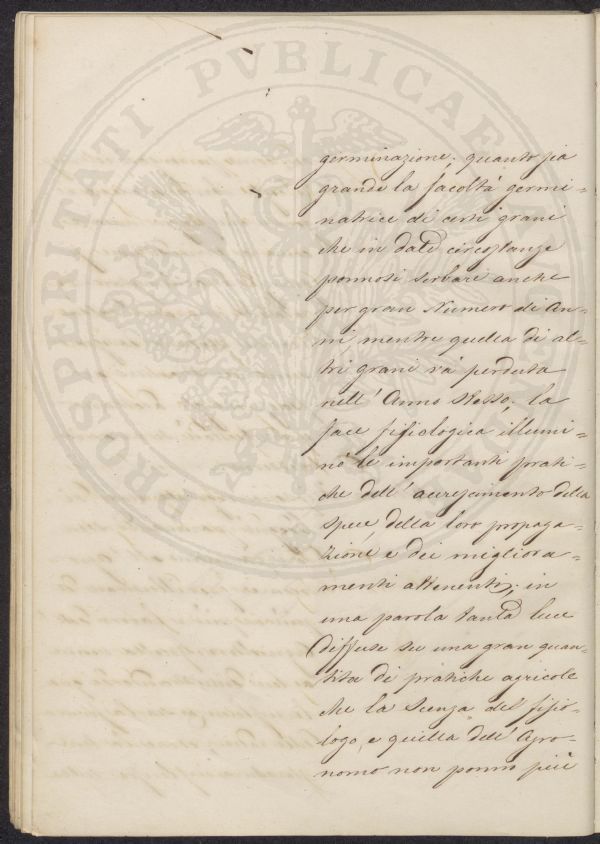 PROSPERITATI PVBLICAE
germinazione; quanto sia
grande la facoltà germi=
natrice di certi grani
che in date circostanze
ponnosi serbare anche
per gran Numero di An=
ni mentre quella di al=
tri grani và perduta
nell' Anno stesso; la
face fisiologica illumi=
nò le importanti prati=
che dell' accrescimento della
specie, della loro propaga=
zione e dei migliora=
menti attenenti; in
una parola tanta luce
diffuse su una gran quan=
tita di pratiche agricole
che la Scienza del fisio=
logo, e quella dell' Agro=
nomo non ponno più